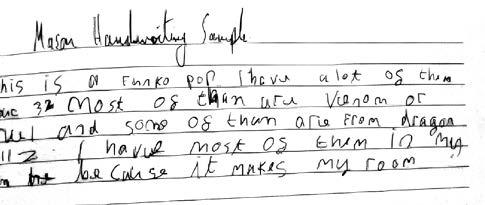 Mason Handwriting Sample
his is a Funko pop I have a lot of them
32 Most of than are Venom or
and some of than are From dragon
I have most of them in my
because it makes my room